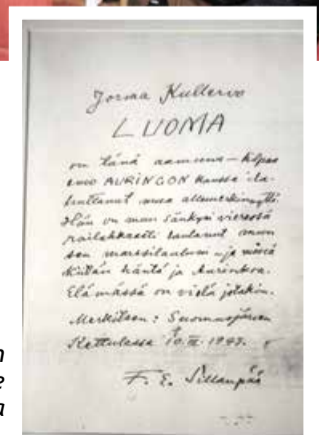 Jorma Kullervo
LUOMA
on tänä aamuna – kilpaa
emo AURINGON kanssa ila-
huttanut mua allemerkinnyttä.
Hän on mun sänkyni vieressä
railakkaasti laulanut
sen marssilaulun – ja minä
kiitän häntä ja Aurinkoa.
Elämässä on vielä jotakin.
Merkitsen: Suomusjärven
Kettulassa 10. III.
F. E. Sillanpää
n
e
a